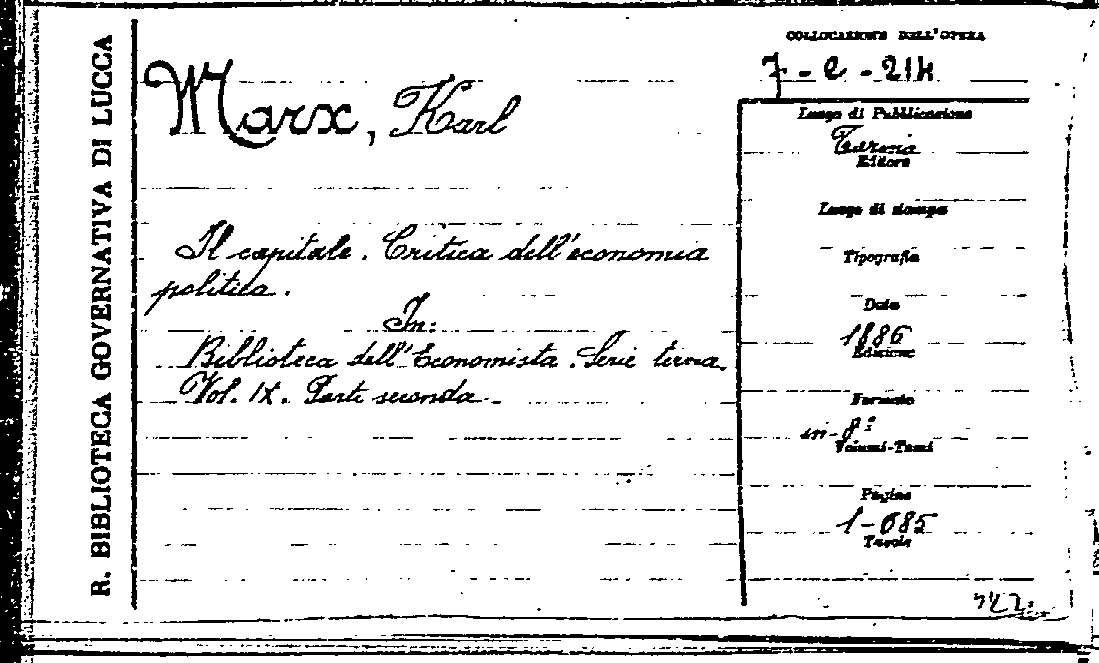 R. BIBLIOTECA GOVERNATIVA DI LUCCA
Marx, Karl
Il capitale. Critica dell'economia
politica.
In:
Biblioteca dell'Economista. Serie terza.
Vol. IX. Parte seconda.
COLLOCAZIONE DELL'OPERA
7-e-214
Luogo di Pubblicazione
Torino
Editore
Luogo di stampa
Tipografia
Data
1886
Edizione
Formato
in-8º
Volumi-Tomi
Pagine
1-685
Tavole